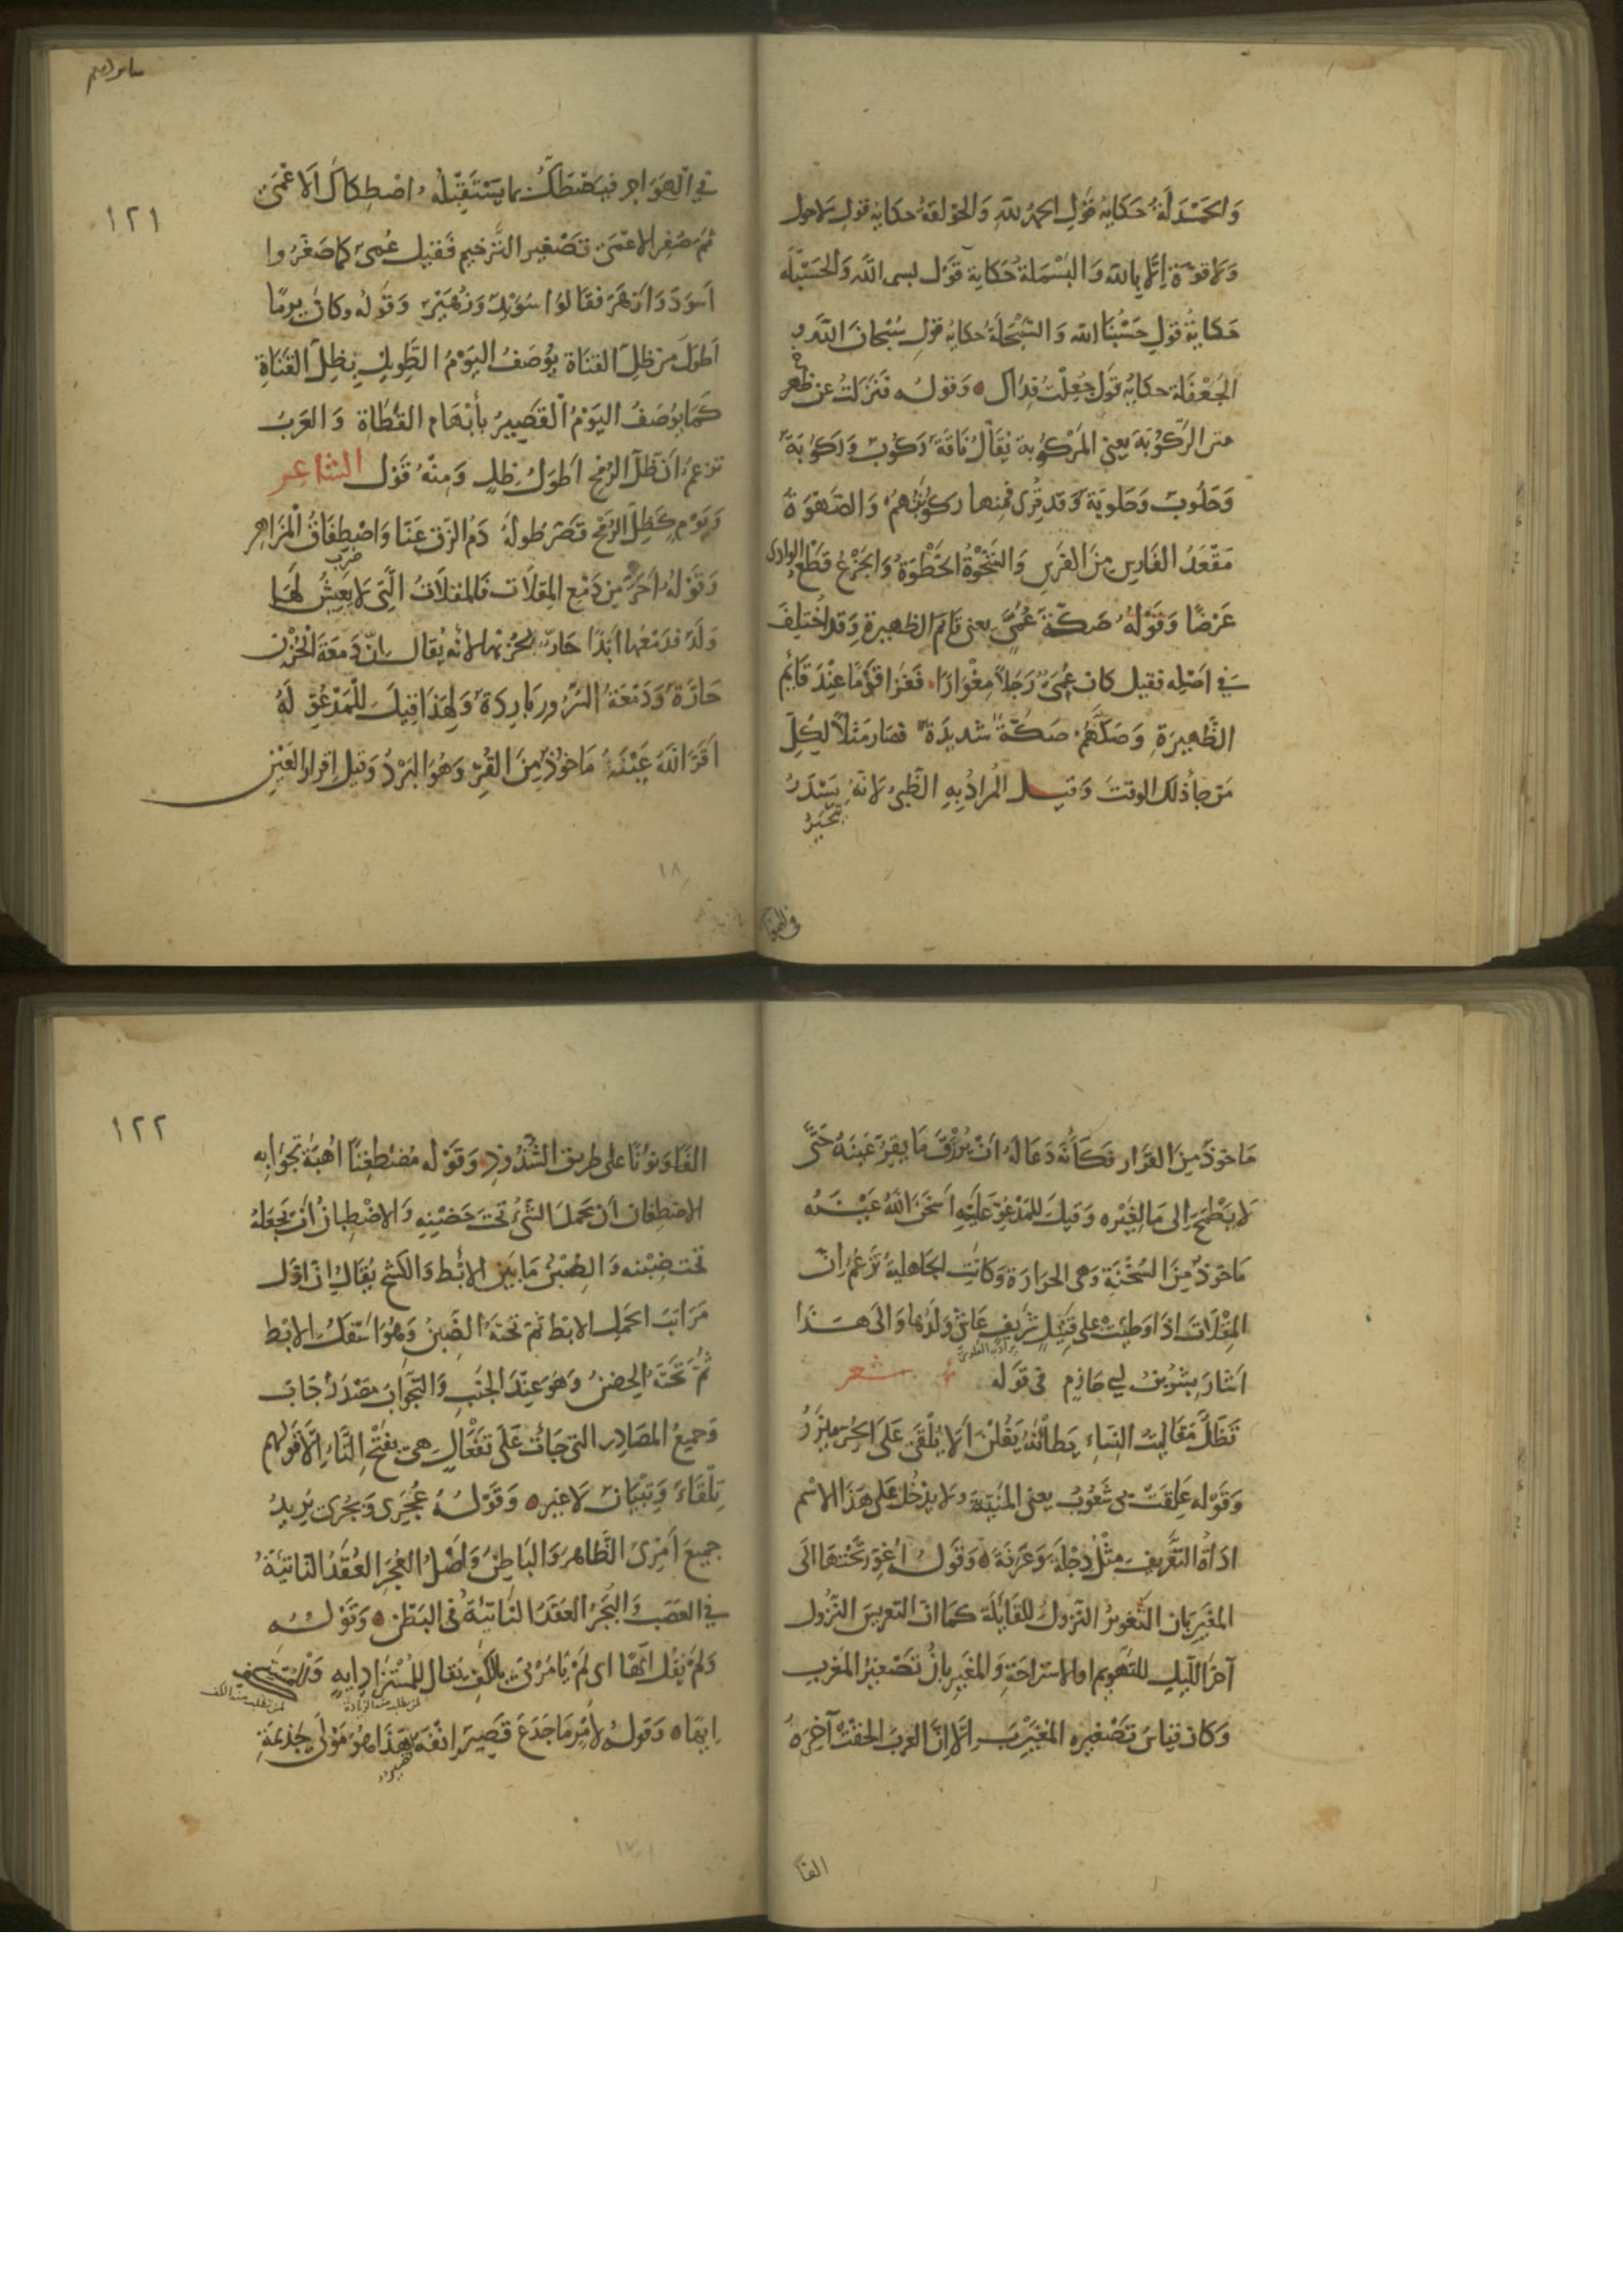 والحمدلة حكاية قول الحمد لله والحولقة حكاية قول لا حول
ولا قوة إلا بالله والبسملة حكاية قول بسم الله والحسبلة
حكاية قول حسبنا الله والسبحلة حكاية قول سبحان الله و
الجعفلة حكاية قول جعلت فداك ٥ وقوله فنزلت عن ظهر
متن الركوبة يعني المركوبة يقال ناقة ركوب وركوبة
وحلوب وحلوبة وقد قرئ فمنها ركوبتهم والصهوة
مقعد الفارس من الفرس والشحوة الخطوة والجزع قطع الوادى
عرضا وقوله صكة عمي يعني قائم الظهيرة وقد اختلف
في اصله فقيل كان عمي رجلا مغوارا فغزا قوما عند قائم
الظهيرة وصكهم صكة شديدة فصار مثلا لكل
من جاء ذلك الوقت وقيل المراد به الظبي لانه يسدر
يتحير
في الهواجر
في الهواجر فيصطك بما يستقبله اصطكاك الاعمى
١٢١
ثم صغر الاعمى تصغير الترخيم فقيل عمي كما صغروا
اسود وازهر فقالوا سويد وزهير وقوله وكان يوما
اطول من ظل القناة يوصف اليوم الطويل بظل القناة
كما يوصف اليوم القصير بأبهام القطاة والعرب
تزعم ان ظل الرمح اطول ظل ومنه قول الشاعر
ويوم كظل الرمح قصر طوله دم الزق عنا واصطفاق المزاهر
ضرب
وقوله احر من دمع المقلات فالمقلات التي لا يعيش لها
ولد فدمعها ابدا حار لحزنها لانه يقال ان دمعة الحزن
حارة ودمعة السرور باردة ولهذا قيل للمدعو له
اقر الله عينه ماخوذ من القر وهو البرد وقيل اقرار العين
١٨
ماخوذ من القرار فكأنه دعا له ان يرزق ما يقر عينه حتى
لا يطمح الى ما لغيره وقيل للمدعو عليه اسخن الله عينه
ماخوذ من السخنة وهي الحرارة وكانت الجاهلية تزعم ان
المقلات اذا وطئت على قتيل شريف عاش ولدها والى هذا
اشار بشر بن ابي حازم في قوله شعر
تظل مقاليت النساء يطأنه يقلن الا يلقى على الحر مئزر
وقوله علقت بي شعوب يعني المنية ولا يدخل على هذا الاسم
اداة التعريف مثل دجلة وعرفة ٥ وقوله اغور تحتها الى
المغيربان التغوير النزول للقايلة كما ان التعريس النزول
آخر الليل للتهويم او الاستراحة والمغيربان تصغير المغرب
وكان قياس تصغيره المغيرب الا ان العرب الحقت آخره
الفا
١٢٢
الفا ونونا على طريق الشذوذ وقوله مضطغنا اهبة تجوابه
الاضطغان ان تحمل الشئ تحت حضنه والاضطبان ان تجعله
تحت ضبنه والضبن ما بين الابط والكشح يقال ان اول
مراتب الحمل الابط ثم تحته الضبن وهو اسفل الابط
ثم تحته الحضن وهو عند الجنب والتجواب مصدر جاب
وجميع المصادر التي جاءت على تفعال هي بفتح التاء الا قولهم
تلقاء وتبيان لا غير ٥ وقوله عجرى وبجرى يريد
جميع امرى الظاهر والباطن واصل العجر العقد الناتئة
في العصب والبجر العقد الناتئة في البطن ٥ وقوله
ولم يقل ايها اى لم يامرني بالكف يقال للمستزاد ايه
لمن يطلب منه الزيادة
لمن يطلب منه الكف
ايها ٥ وقوله لامر ما جدع قصير انفه هذا هو مولى جذيمة